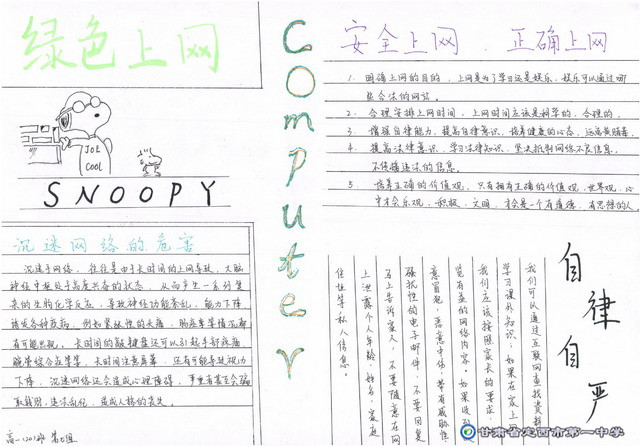 绿色上网
JOE
COOL
SNOOPY
沉迷网络的危害
沉迷于网络，往往是由于长时间的上网导致，大脑
神经中枢处于高度兴奋的状态，从而产生一系列复
杂的生物化学反应，导致神经功能紊乱，能力下降
诱发各种疾病，例如紧张性的头痛，
有可能出现，长时间的敲键盘还可以引起手部疾病
腕管综合症等，长时间注意屏幕，还有可能导致视力
下降，沉迷网络还会造成心理障碍，
高一
Computer
安全上网 正确上网
1. 明确上网的目的，上网是为了学习还是娱乐，娱乐可以通过哪
些合法的网站。
2. 合理安排上网时间，上网时间应该是科学的，合理的。
3. 增强自律能力，提高自律意识，培养健康的心态，远离
4. 提高法律意识，学习法律知识，坚决抵制网络不良信息，
不传播违法的信息。
5. 培养正确的价值观，只有拥有正确的价值观，世界观，心
中才会乐观，积极，文明，才会是一个有道德，有思想的人
自律自严
我们可以通过互联网查找资料
学习课外知识，如果在家上
我们应该按照家长的要求，
览有益的网络内容，如果收到
意冒犯，恶意中伤，带有威胁性
骚扰性的电子邮件，不要回复
马上告诉家人，不要随意在网
上泄露个人年龄，姓名，家庭
住址等私人信息。
甘肃省定西市第一中学